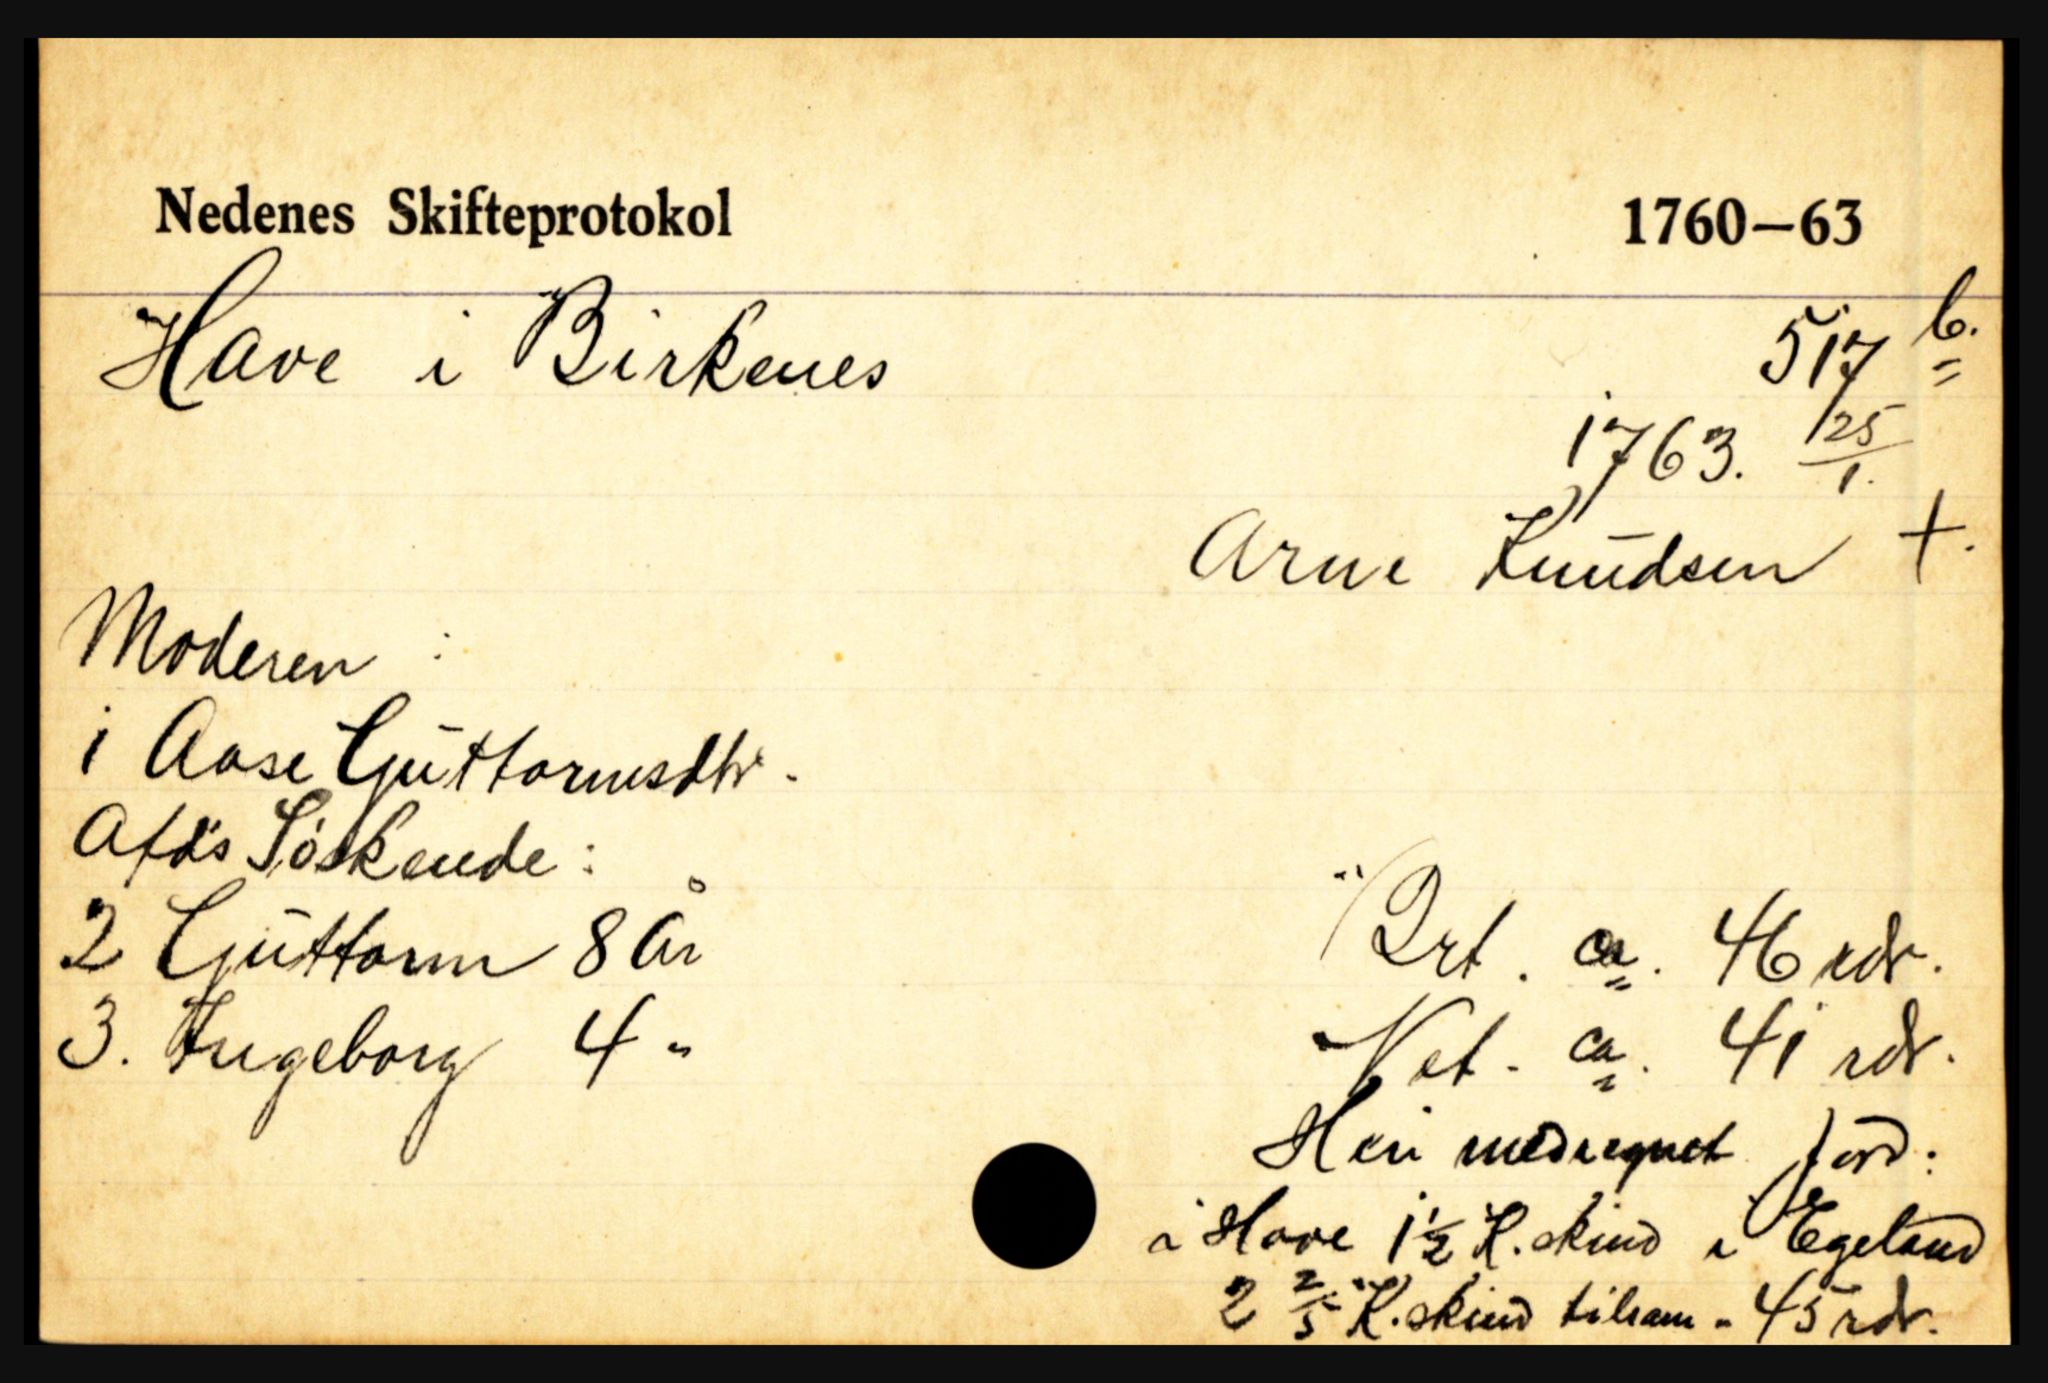 Nedenes Skifteprotokol 1760—63
Have i Birkenes 517 b.
1763. 25/1.
Arne Knudsen +.
Moderen :
1 Aase Guttormsdtr.
Afdøs Söskende :
2 Guttorm 8 År
3. Ingeborg 4 "
Brt. ca. 46 rdr.
Net. ca. 41 rdr.
Heri medregnet jord:
i Have 1½ K.skind i Egeland
2 2/5 K.skind tilsam. 45 rdr.